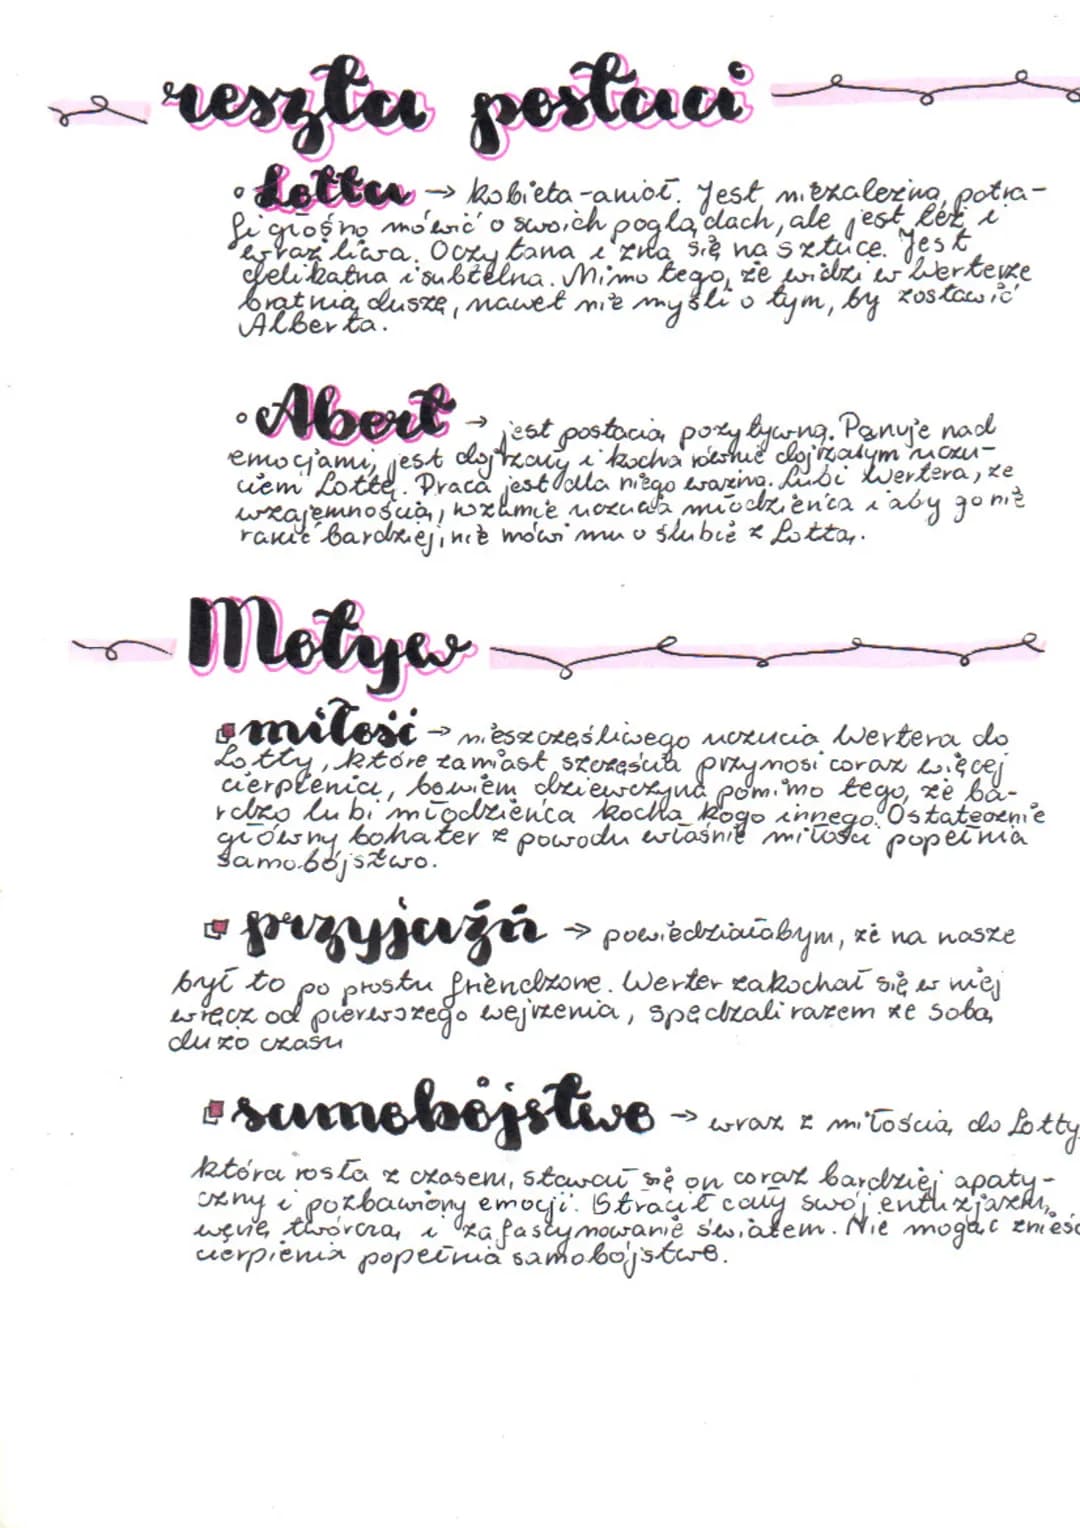 reszta postaci
• Lotta → kobieta-anioł. Jest niezależna, potra-
fi głośno mówić o swoich poglądach, ale jest też i
wrażliwa. Oczytana i zna się na sztuce. Jest
delikatna i subtelna. Mimo tego, że widzi w Werterze
bratnią duszę, nawet nie myśli o tym, by zostawić
Alberta.
• Abert → jest postacią pozytywną. Panuje nad
emocjami, jest dojrzały i kocha równie dojrzałym uczu-
ciem Lottę. Praca jest dla niego ważna. Lubi Wertera, ze
wzajemnością, rozumie uczucia młodzieńca i aby go nie
ranić bardziej, nie mówi mu o ślubie z Lottą.
Motyw
miłość → nieszczęśliwego uczucia Wertera do
Lotty, które zamiast szczęścia przynosi coraz więcej
cierpienia, bowiem dziewczyna pomimo tego, że ba-
rdzo lubi młodzieńca kocha kogo innego. Ostatecznie
główny bohater z powodu właśnie miłości popełnia
samobójstwo.
przyjaźń → powiedziałabym, że na nasze
był to po prostu friendzone. Werter zakochał się w niej
wręcz od pierwszego wejrzenia, spędzali razem ze sobą
dużo czasu
samobójstwo → wraz z miłością do Lotty
która rosła z czasem, stawał się on coraz bardziej apaty-
czny i pozbawiony emocji. Stracił cały swój entuzjazm,
wenę twórczą i zafascynowanie światem. Nie mogąc znieść
cierpienia popełnia samobójstwo.